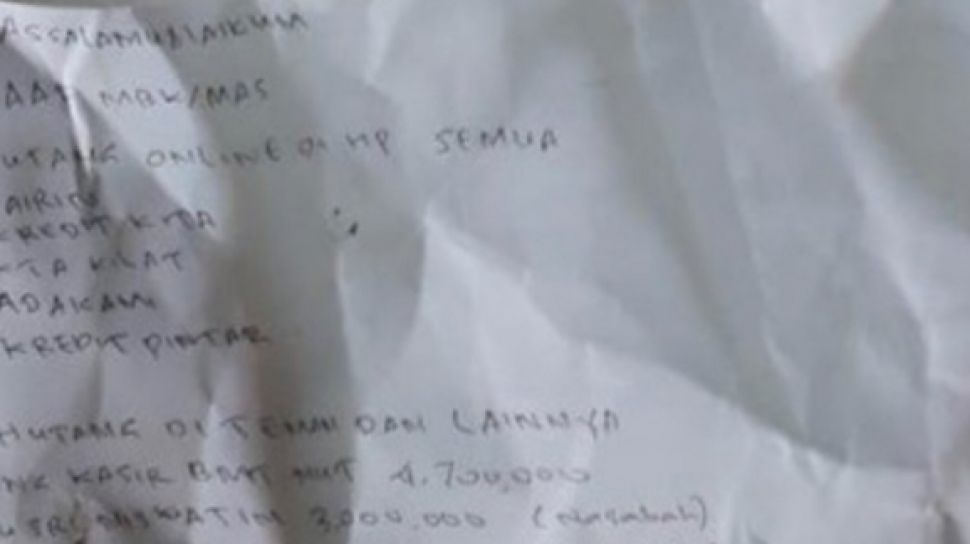 ASSALAMUALAIKUM
MBK/MAS
UTANG ONLINE DI HP SEMUA
AIRITU
KREDIT KITA
KTA KILAT
ADAKAMI
KREDIT PINTAR
HUTANG DI TEMAN DAN LAINNYA
KASIR BMT NUT 4.700,000
3,000,000 (Nasabah)